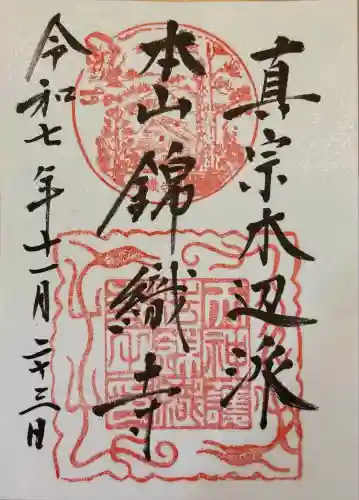 真宗木辺派
本山錦織寺
令和七年十一月二十三日